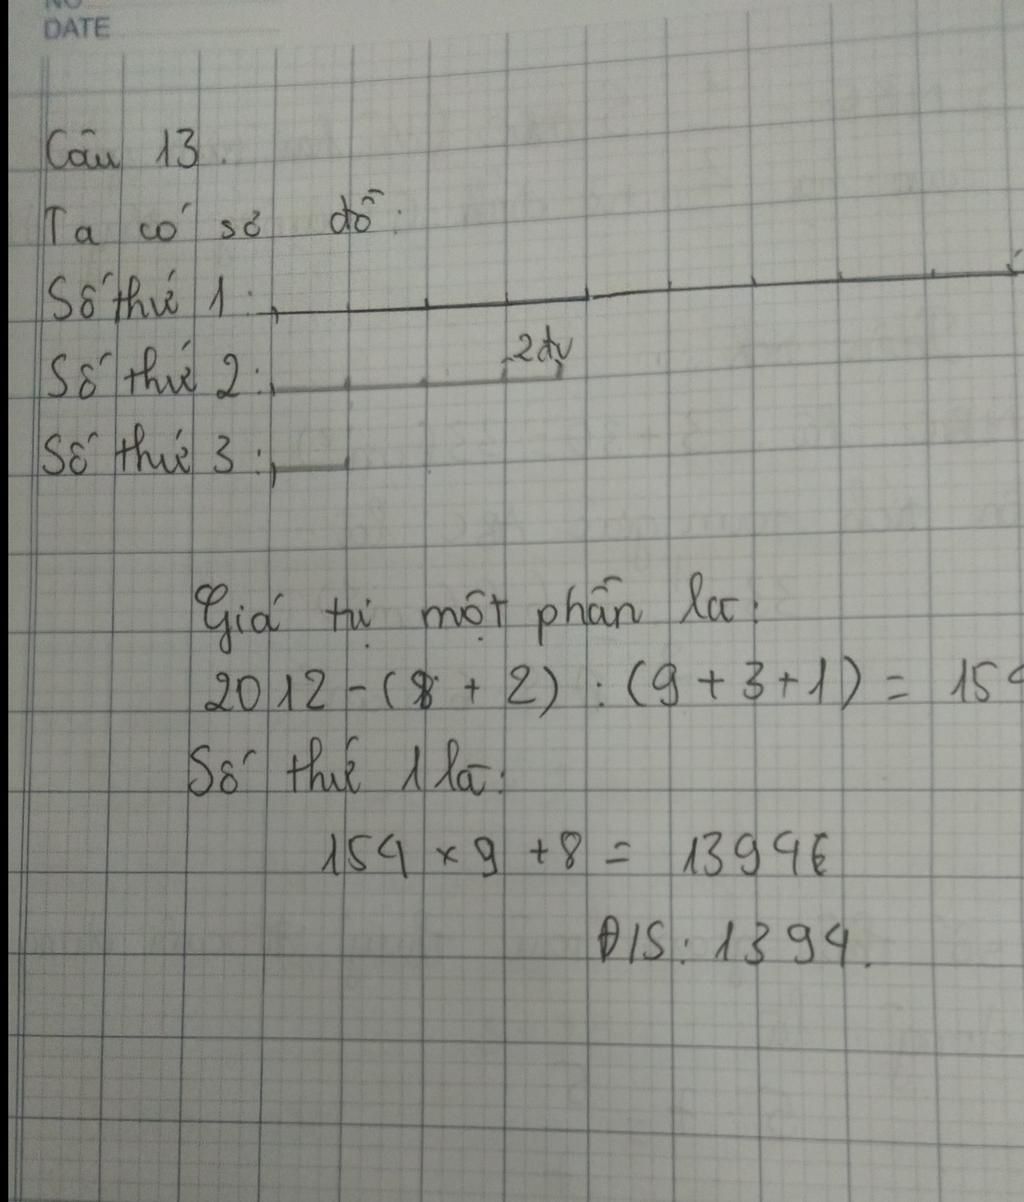 DATE
Câu 13.
Ta có sơ đồ:
Số thứ 1:
Số thứ 2: 2đv
Số thứ 3:
Giá trị một phần là:
2012 - (8 + 2) : (9 + 3 + 1) = 154
Số thứ 1 là:
154 x 9 + 8 = 1394
Đ/S: 1394.